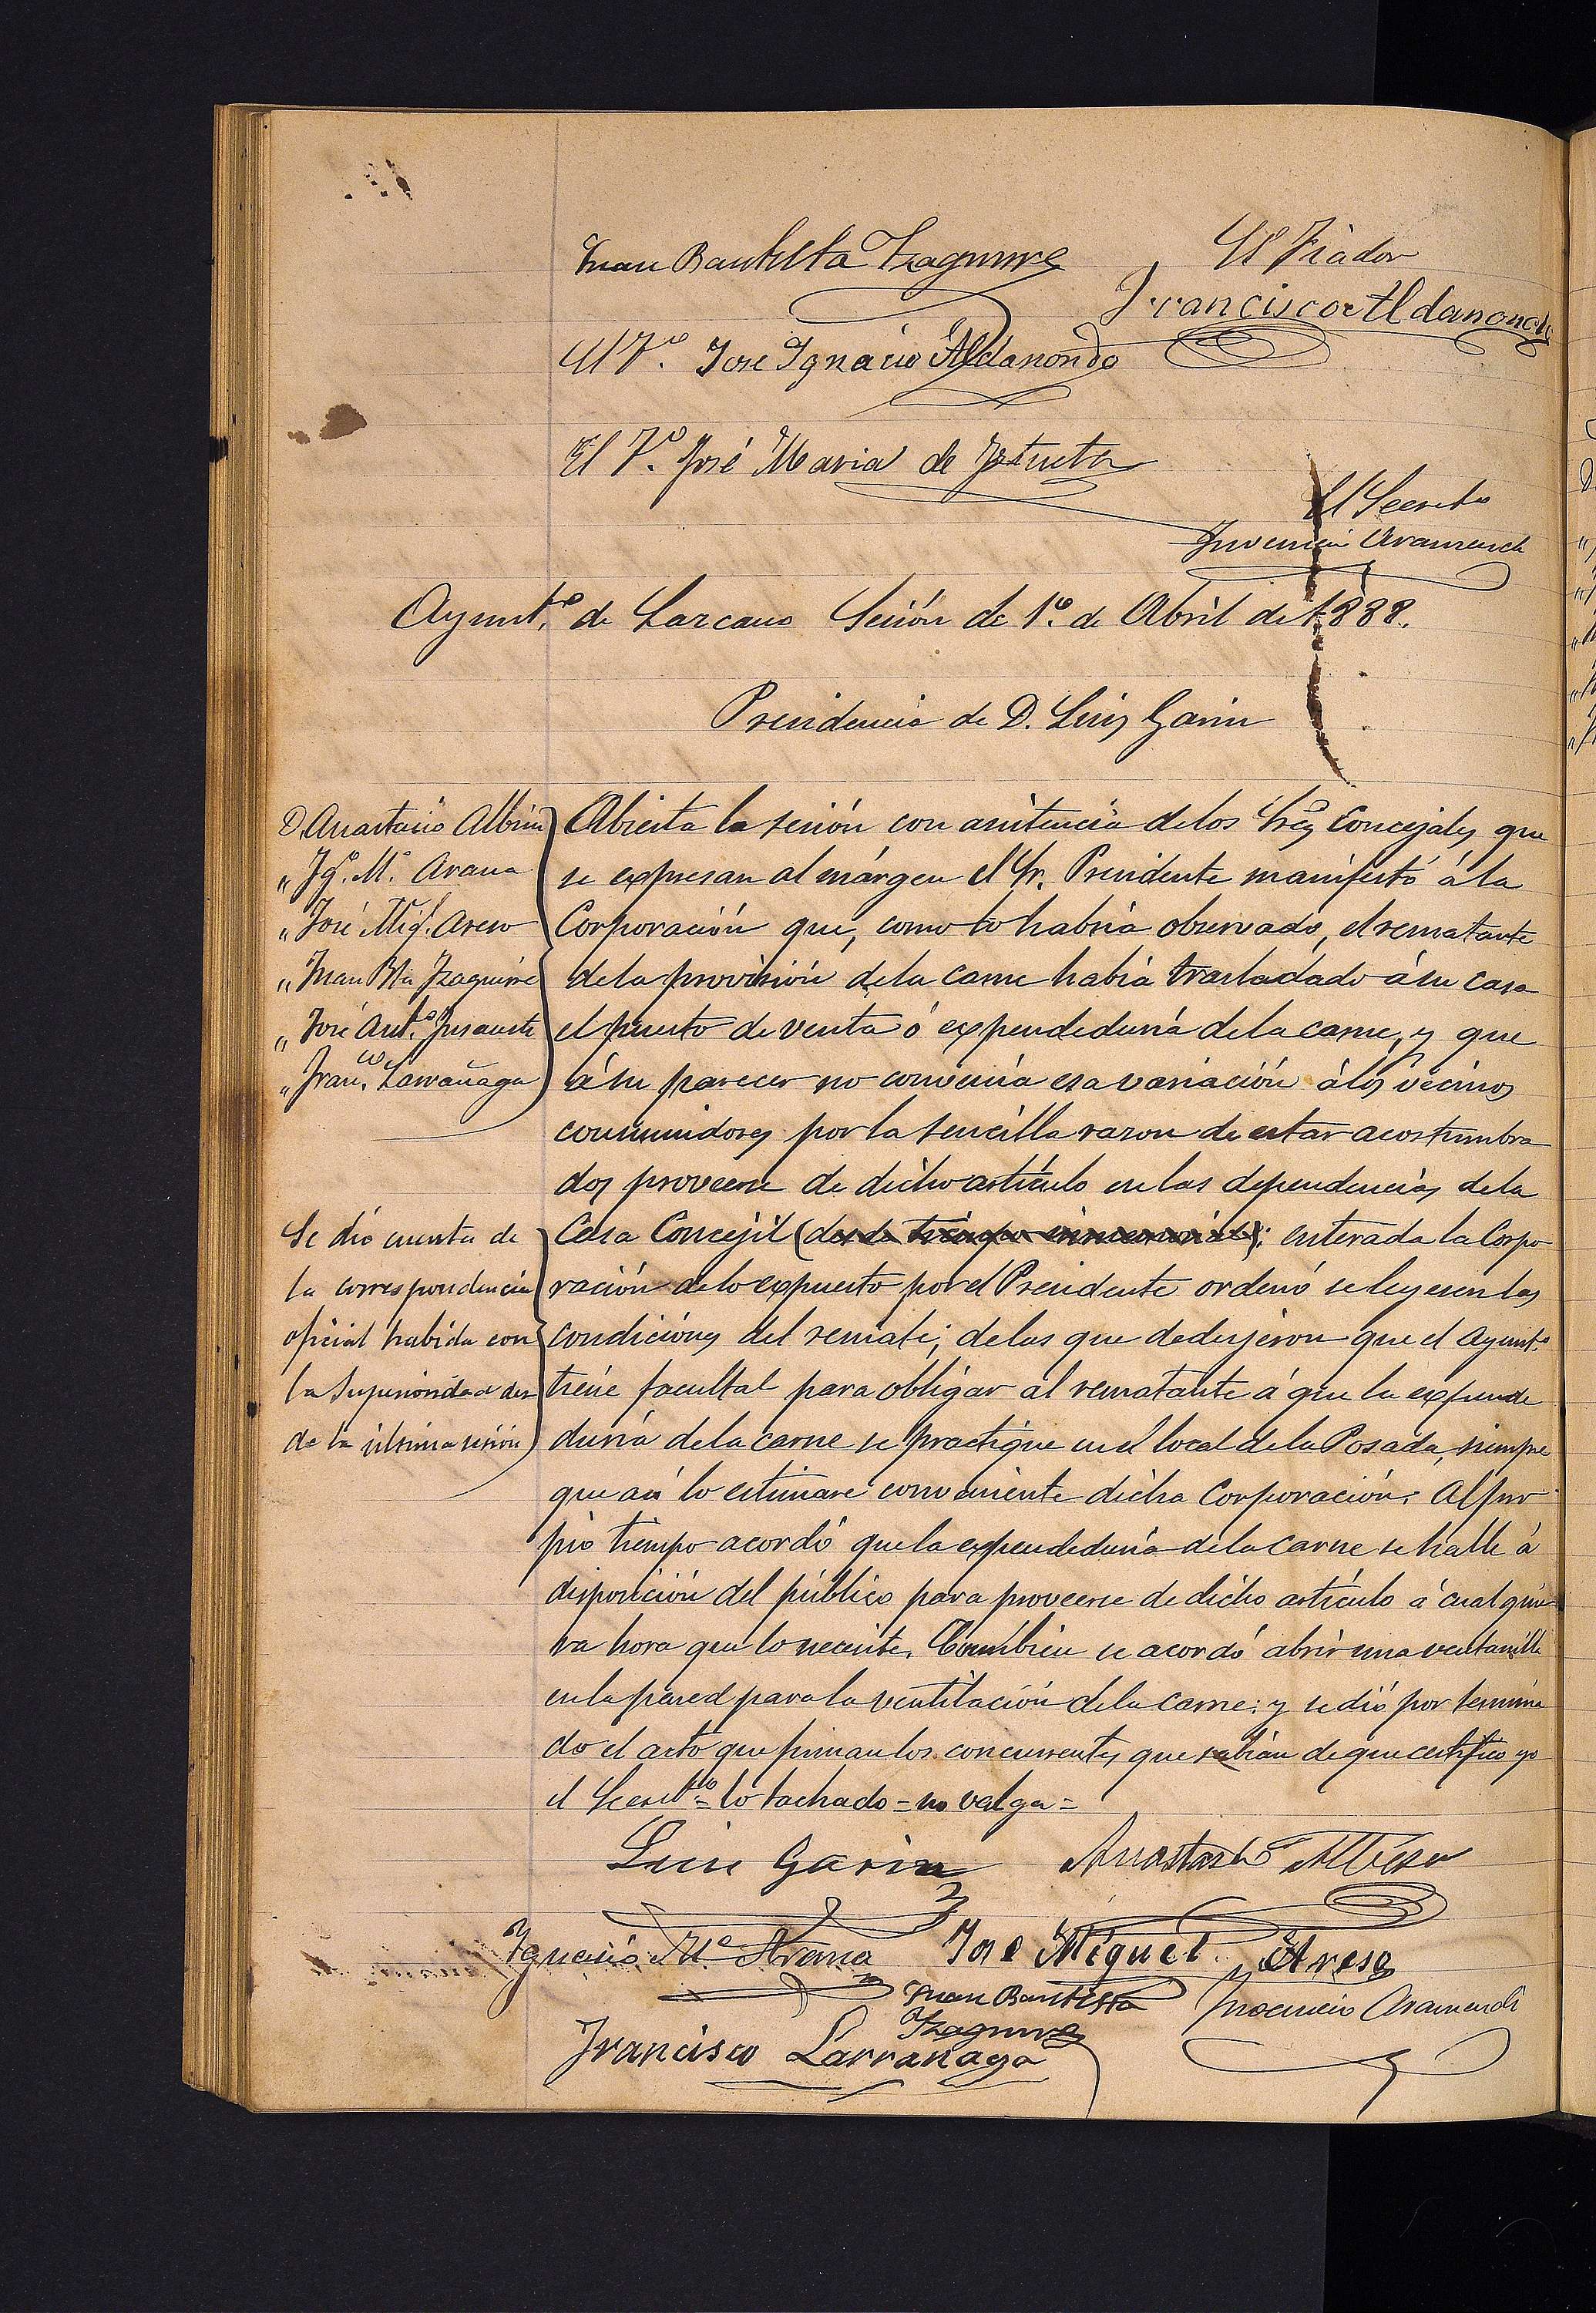 Juan Bautista Yzaguirre
El Fiador
Francisco Aldanondo
El Tº. José Ignacio Aldanondo
El Tº. José Maria de Iztueta
El Secretº
Inocencio Aramendi
Ayuntº. de Lazcano Sesión de 1º. de Abril de 1888.
Presidencia de D. Luis Garin
D. Anastasio Albisu
" Igº. Mª. Arana
" José Migl. Areso
" Juan Bta Yzaguirre
" José Antº. Insausti
" Franco. Larrañaga
Abierta la sesión con asistencia de los Sres Concejales que
se expresan al márgen el Sr. Presidente manifestó á la
Corporación que, como lo habria observado, el rematante
de la provisión de la carne habia trasladado á su casa
el puesto de venta ó expendeduria de la carne, y que
á su parecer no convenia esa variación á los vecinos
consumidores por la sencilla razon de estar acostumbra
dos proveerse de dicho artículo en las dependencias de la
Casa Concejil (desde tiempo inmemorial); enterada la Corpo
ración de lo expuesto por el Presidente ordenó se leyesen las
condiciones del remate; de las que dedujeron que el Ayuntº
tiene facultad para obligar al rematante á que la expende
duria de la carne se practique en el local de la Posada, siempre
que asi lo estimare conveniente dicha Corporación. Al pro
pio tiempo acordó que la expendeduria de la carne se halle á
disposición del público para proveerse de dicho artículo á cualquie
ra hora que lo necesite. Tambien se acordó abrir una ventanilla
en la pared para la ventilación de la carne: y se dió por termina
do el acto que firman los concurrentes que sabian de que certifico yo
el Secretº = lo tachado = no valga =
Se dió cuenta de
la correspondencia
oficial habida con
la Superioridad des
de la última sesión
Luis Garin
Anastasio Albisu
Ygnacio Mª Arana
Jose Miguel Areso
Juan Bautista
Yzaguirre
Inocencio Aramendi
Francisco Larrañaga